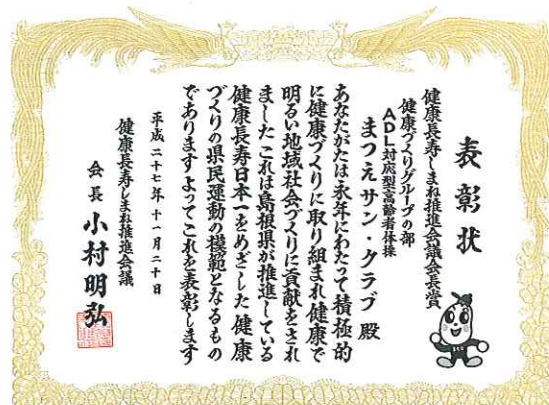 表彰状
健康長寿しまね推進会議会長賞
健康づくりグループの部
ADL対応型高齢者体操
まつえサン・クラブ 殿
あなたがたは永年にわたって積極的
に健康づくりに取り組まれ健康で
明るい地域社会づくりに貢献をされ
ましたこれは島根県が推進している
健康長寿日本一をめざした健康
づくりの県民運動の模範となるもの
でありますよってこれを表彰します
平成二十七年十一月二十日
健康長寿しまね推進会議
会長 小村明弘